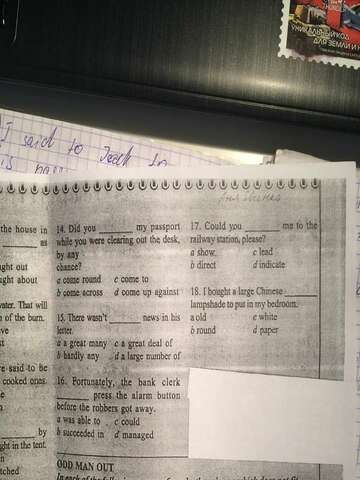 УНИКАЛЬНЫЙ КОД
ДЛЯ ЗЕМЛИ И Н
I said to
the house in
as
ught out
ught about
water. That will
n of the burn.
ve
st
re said to be
cooked ones.
e
by
ght in the tent.
n
tched
14. Did you ______ my passport
while you were clearing out the desk,
by any
chance?
a come round c come to
b come across d come up against
15. There wasn't ______ news in his
letter.
a a great many c a great deal of
b hardly any d a large number of
16. Fortunately, the bank clerk
______ press the alarm button
before the robbers got away.
a was able to c could
b succeeded in d managed
ODD MAN OUT
17. Could you ______ me to the
railway station, please?
a show c lead
b direct d indicate
18. I bought a large Chinese ______
lampshade to put in my bedroom.
a old c white
b round d paper